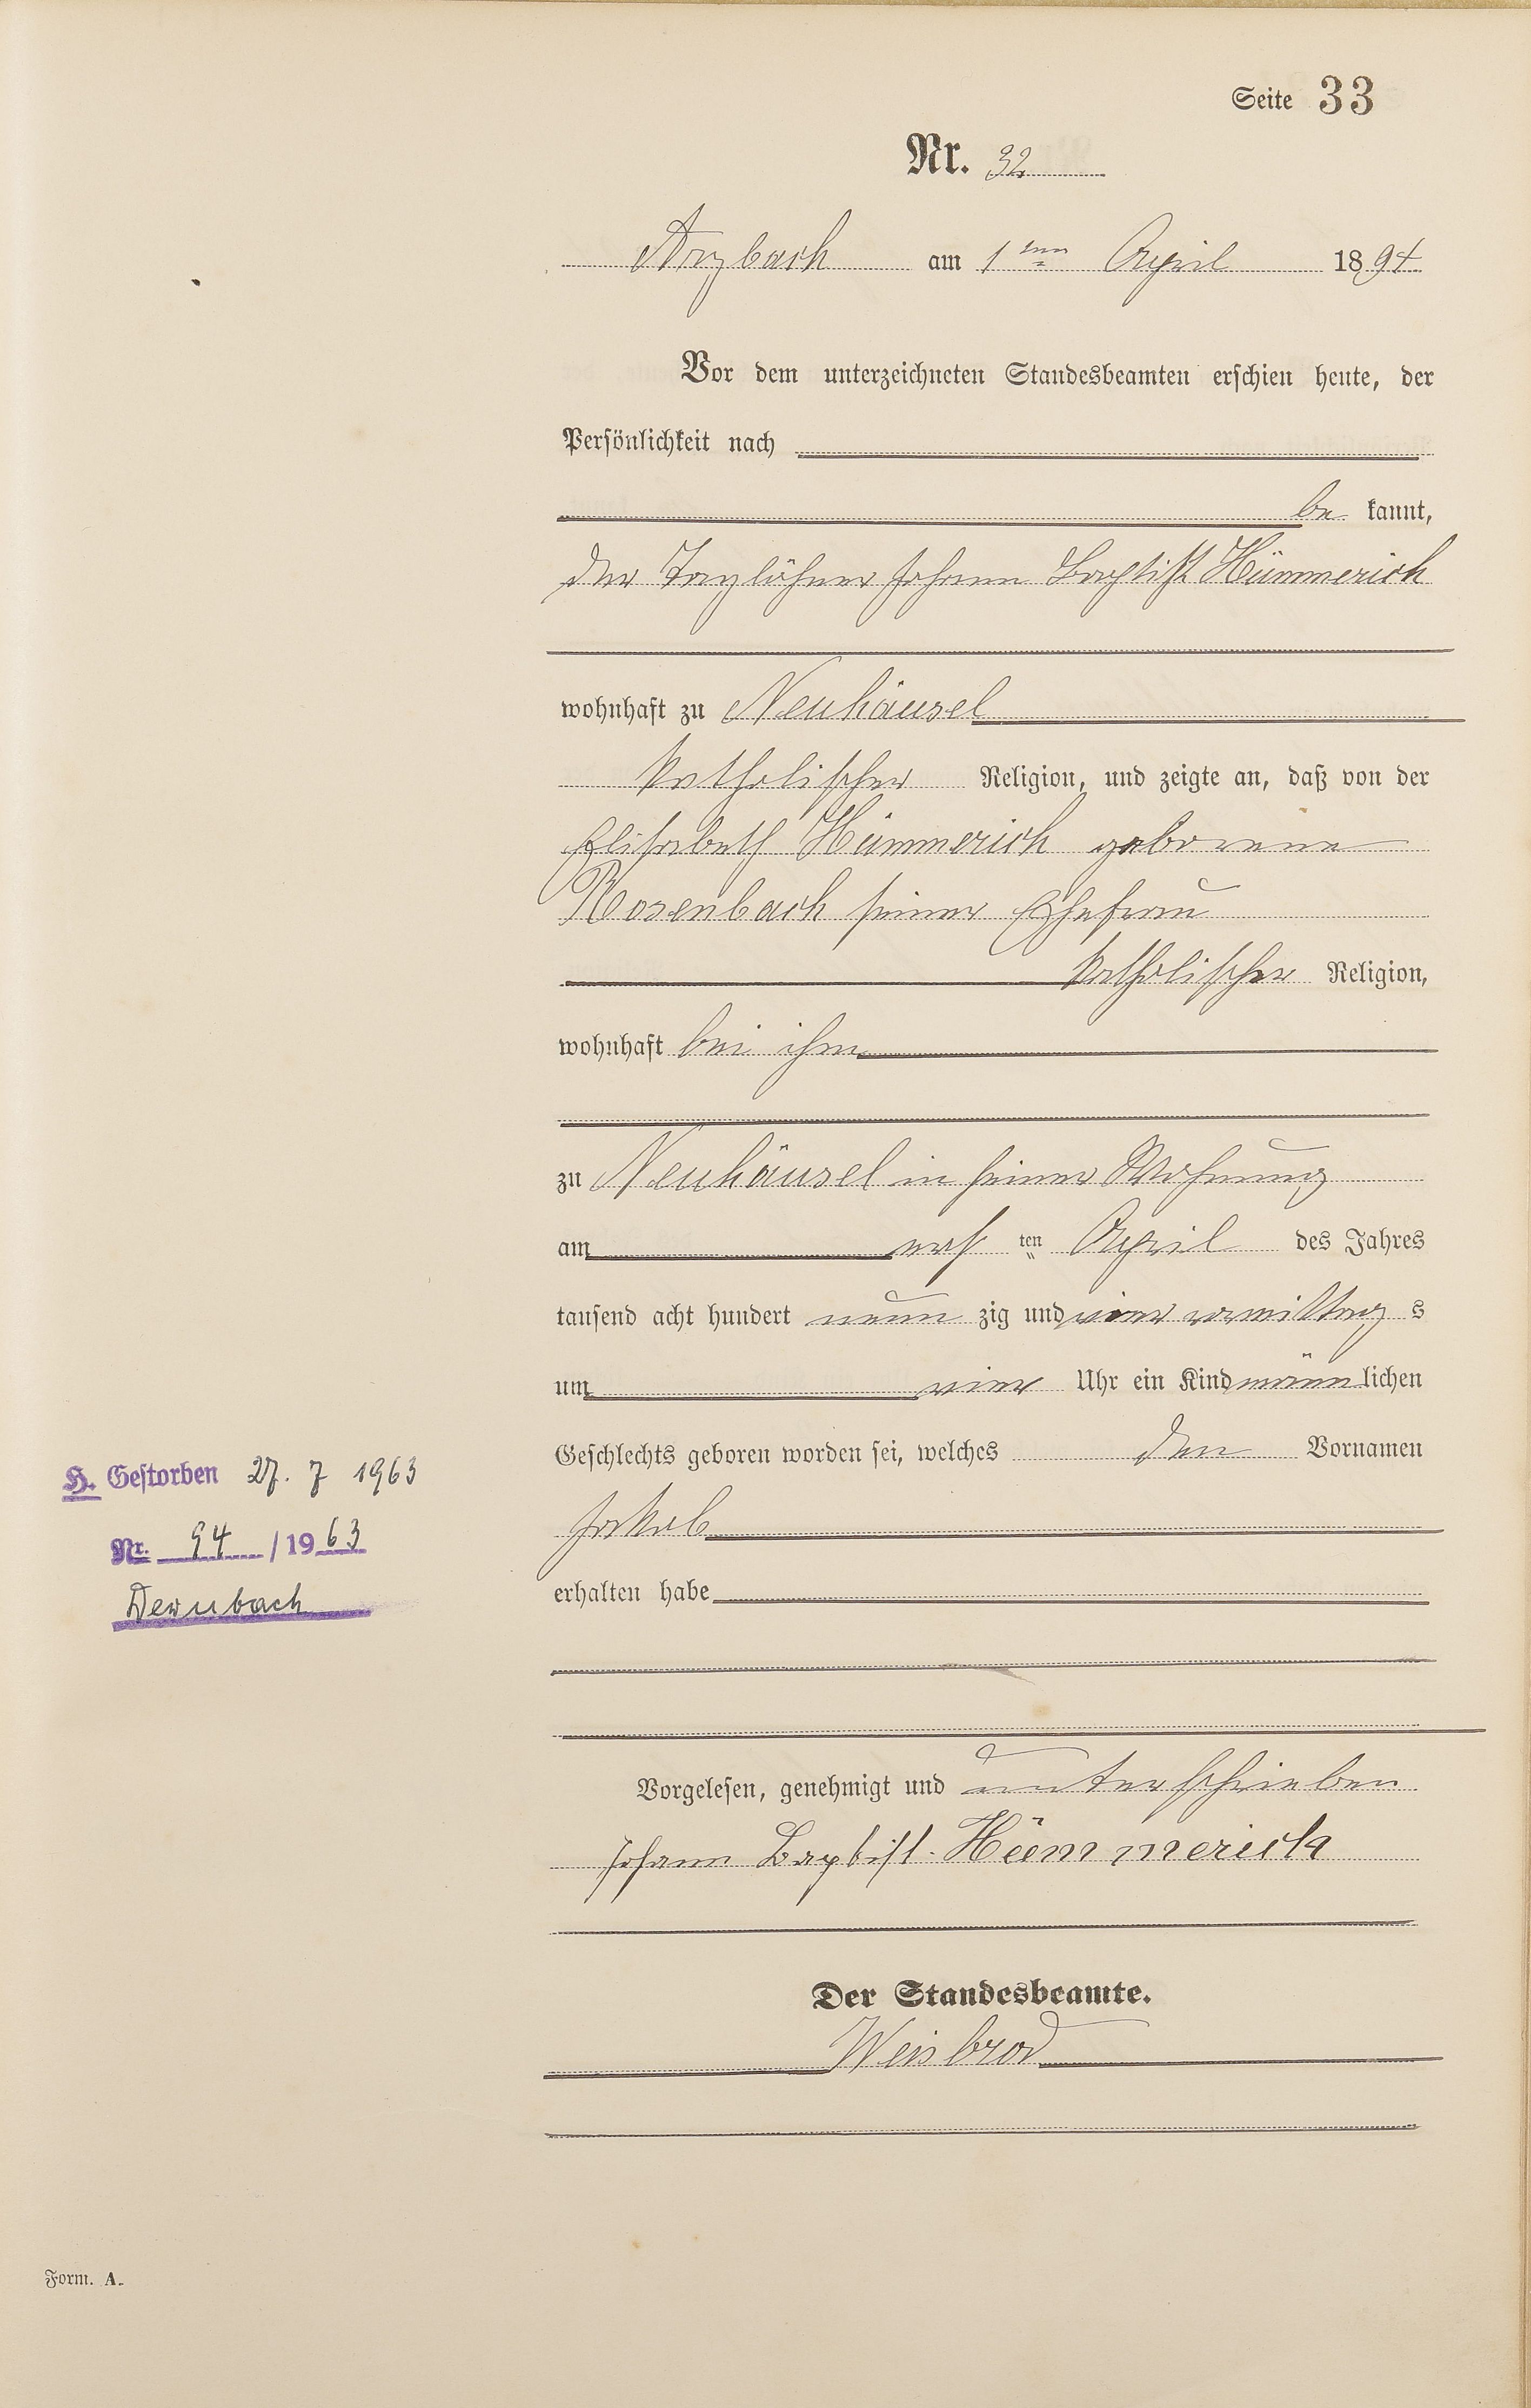 Seite 33
Nr. 32
Arzbach am 1ten April 1894
Vor dem unterzeichneten Standesbeamten erschien heute, der
Persönlichkeit nach
be kannt,
der Taglöhner Johann Baptist Hümmerich
wohnhaft zu Neuhäusel
katholischer Religion, und zeigte an, daß von der
Elisabeth Hümmerich geborene
Rosenbach seiner Ehefrau
katholischer Religion,
wohnhaft bei ihm
zu Neuhäusel in seiner Wohnung
am ersten April des Jahres
tausend acht hundert neun zig und vier vormittags
um vier Uhr ein Kind männlichen
Geschlechts geboren worden sei, welches den Vornamen
H. Gestorben 27. 7 1963
Jakob
Nr. 94 / 1963
erhalten habe
Dernbach
Vorgelesen, genehmigt und unterschrieben
Johann Baptist Hümmerich
Der Standesbeamte.
Weisbrod
Form. A.